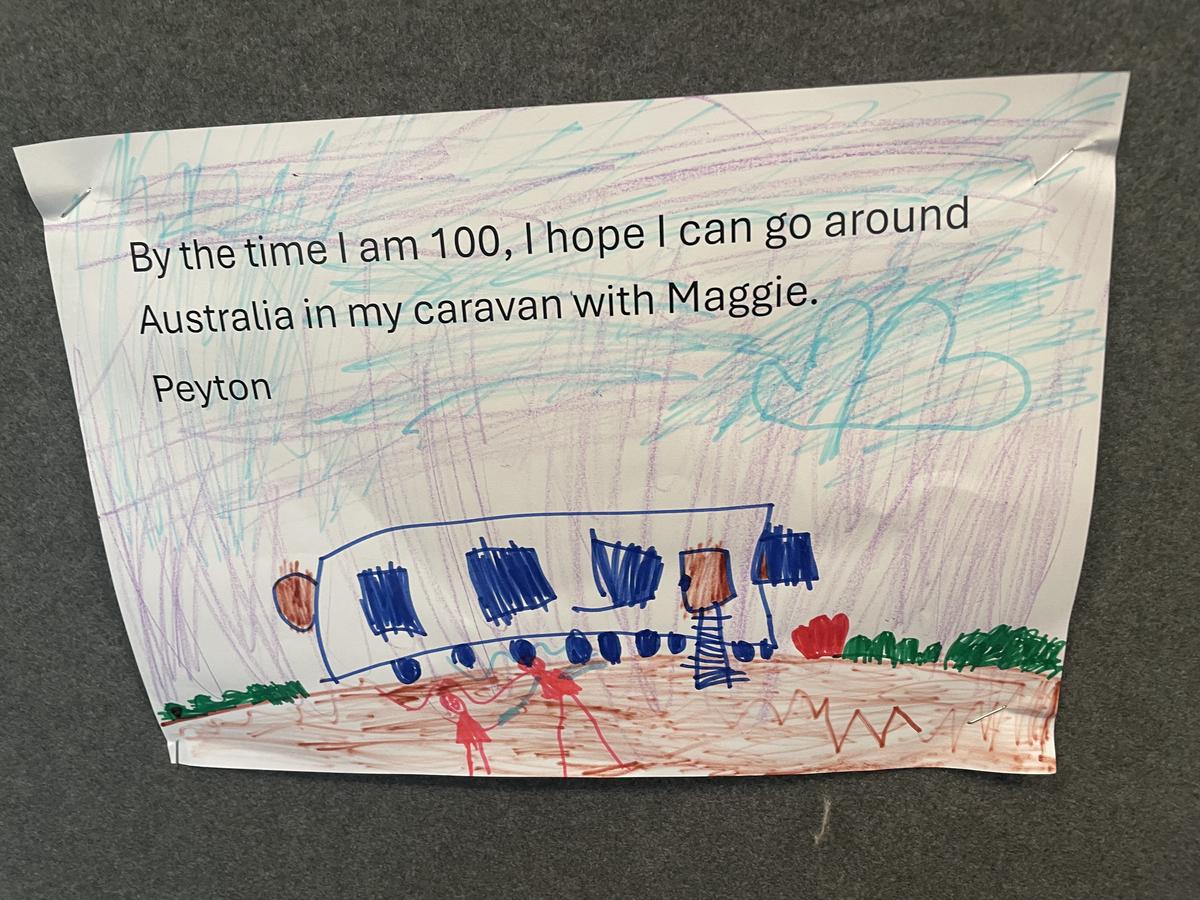 By the time I am 100, I hope I can go around
Australia in my caravan with Maggie.
Peyton